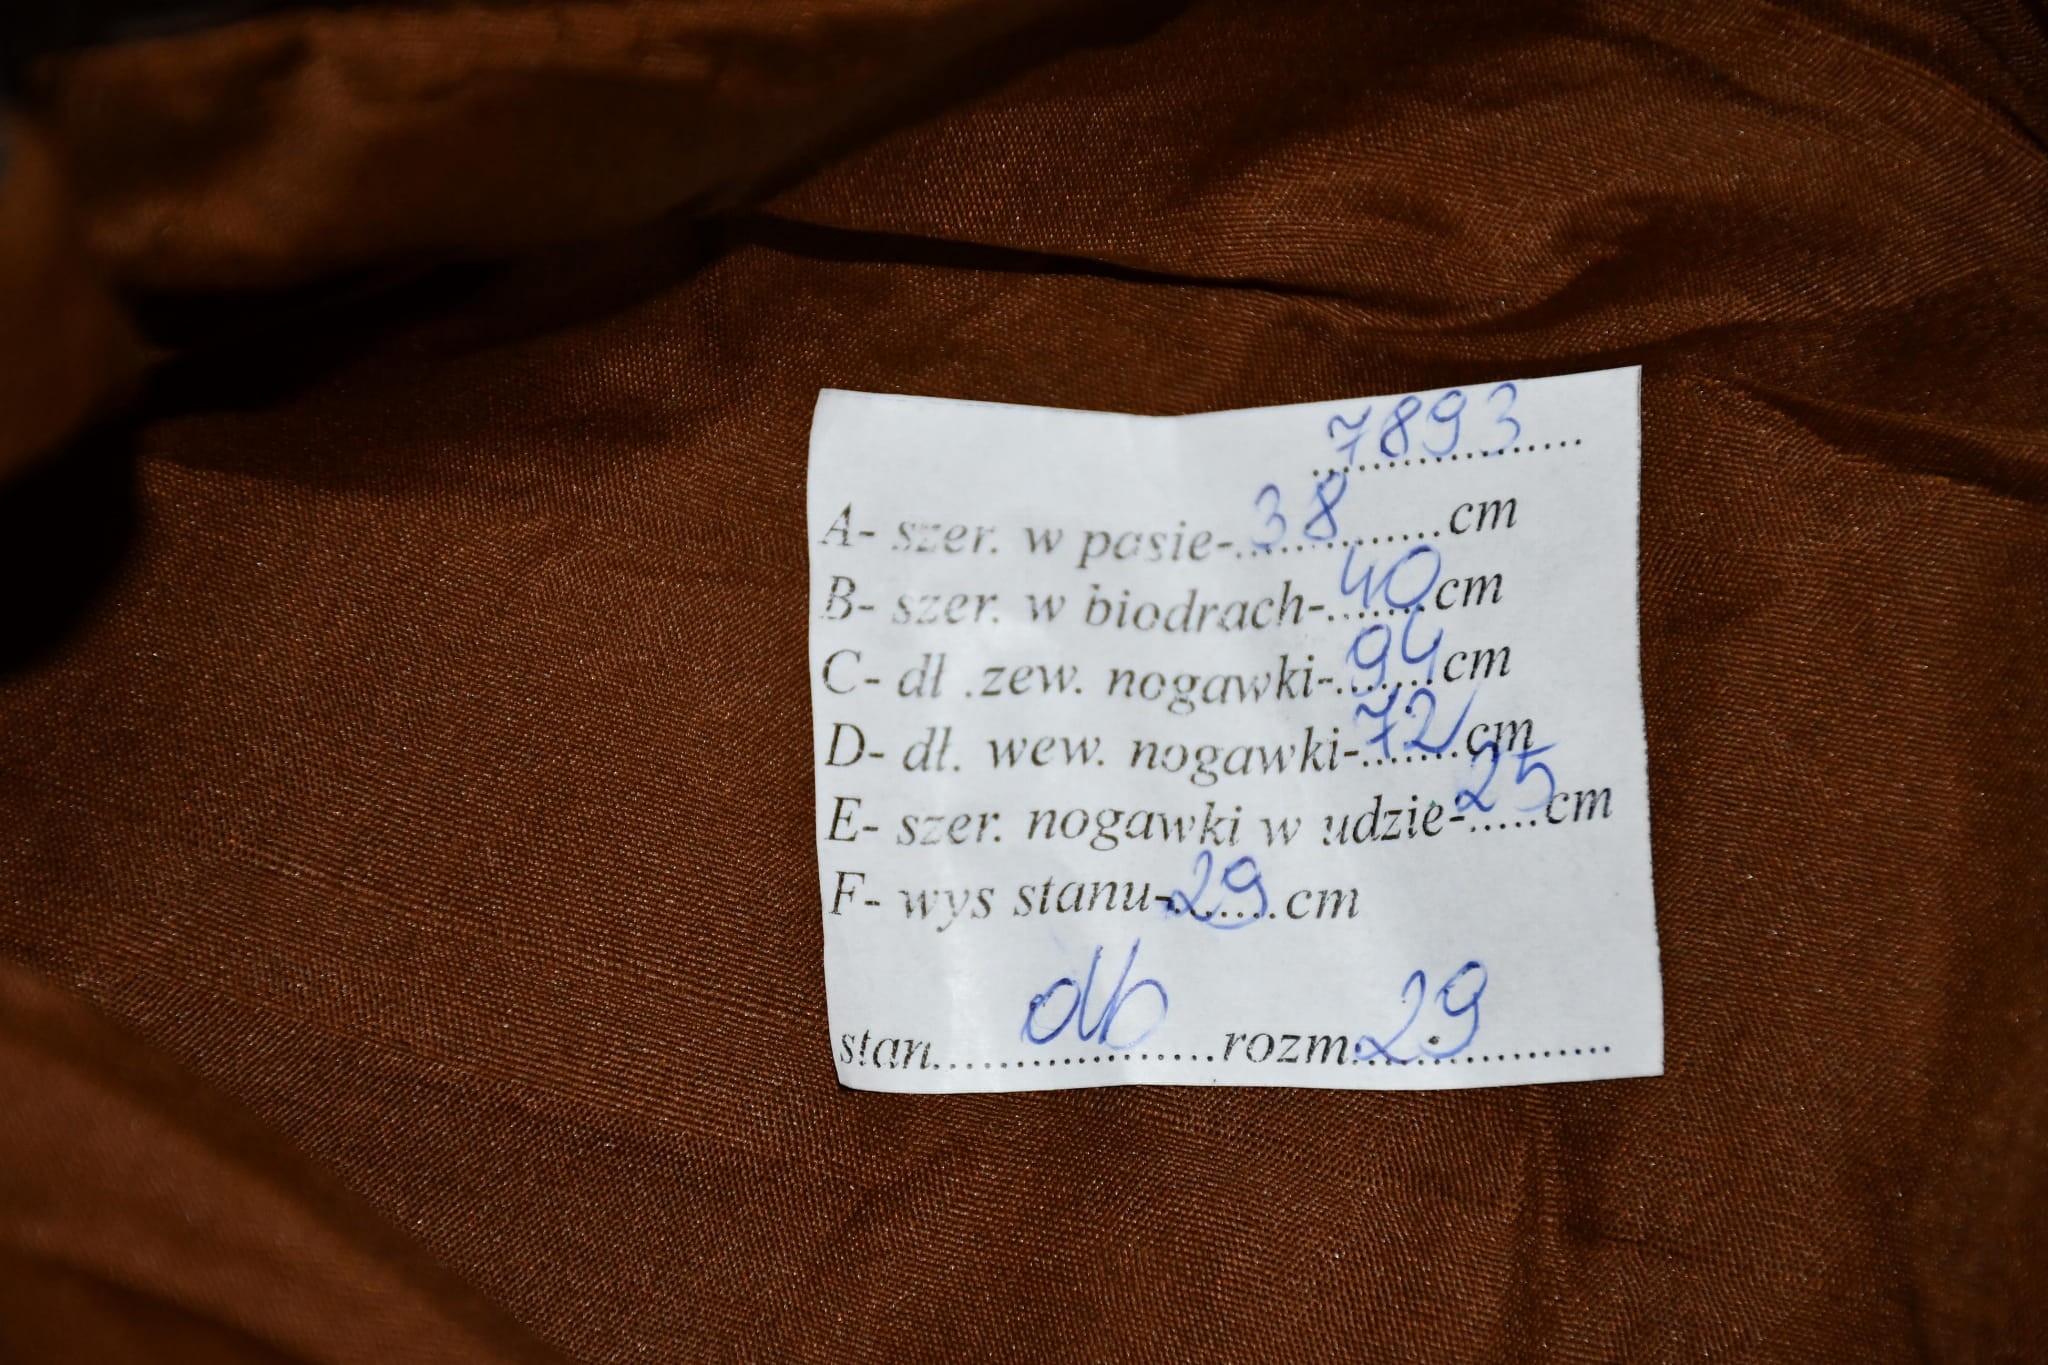 7893
A- szer. w pasie-38 cm
B- szer. w biodrach-40 cm
C- dł .zew. nogawki-94 cm
D- dł. wew. nogawki-72 cm
E- szer. nogawki w udzie-25 cm
F- wys stanu-29 cm
stan db rozm. 29